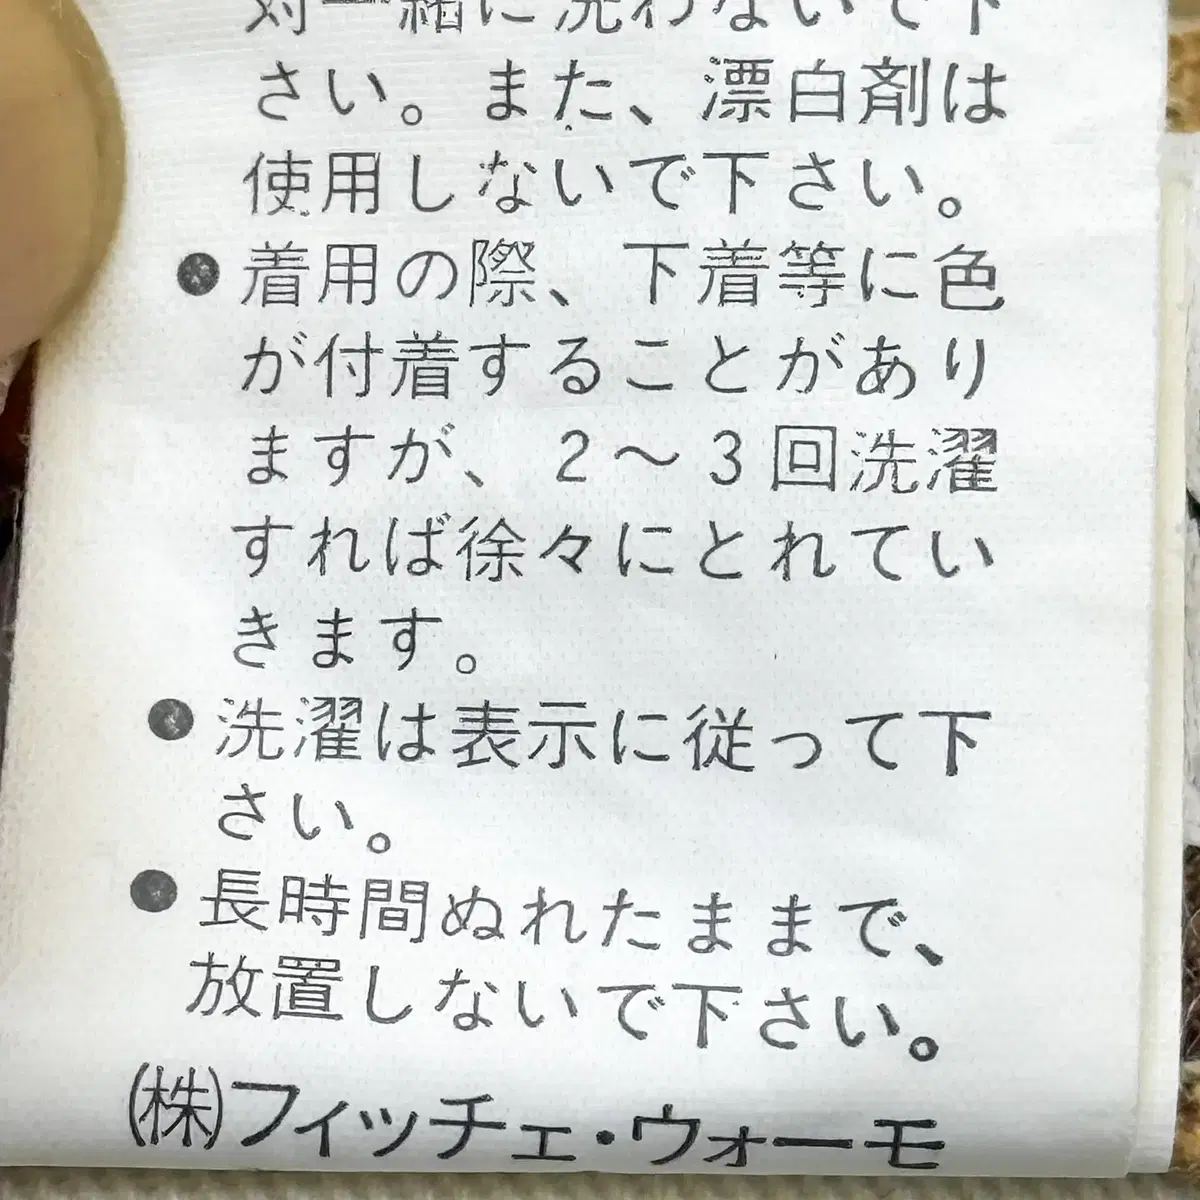 対一緒に洗わないで下
さい。また、漂白剤は
使用しないで下さい。
●着用の際、下着等に色
が付着することがあり
ますが、2〜3回洗濯
すれば徐々にとれてい
きます。
●洗濯は表示に従って下
さい。
●長時間ぬれたままで、
放置しないで下さい。
(株)フィッチェ・ウォーモ